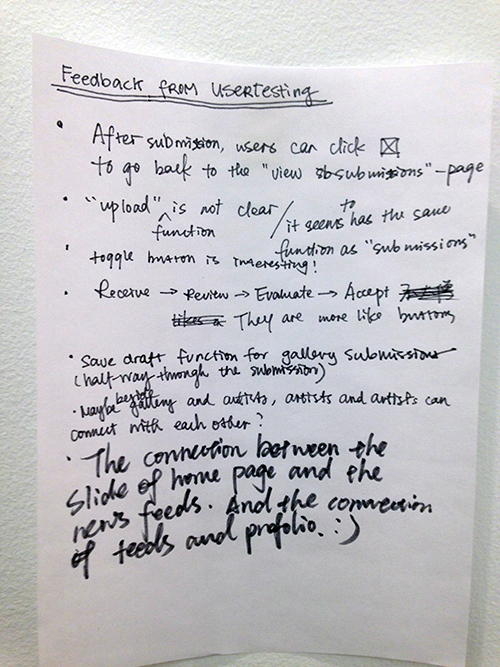 Feedback from Usertesting
• After submission, users can click ☒
to go back to the "view submissions"-page
• "upload" function is not clear / it seems to has the same
function as "submissions"
• toggle button is interesting!
• Receive → Review → Evaluate → Accept
They are more like buttons
• Save draft function for gallery submission
(half-way through the submission)
• Maybe beside gallery and artists, artists and artists can
connect with each other?
• The connection between the
slide of home page and the
news feeds. And the connection
of feeds and profolio. :)